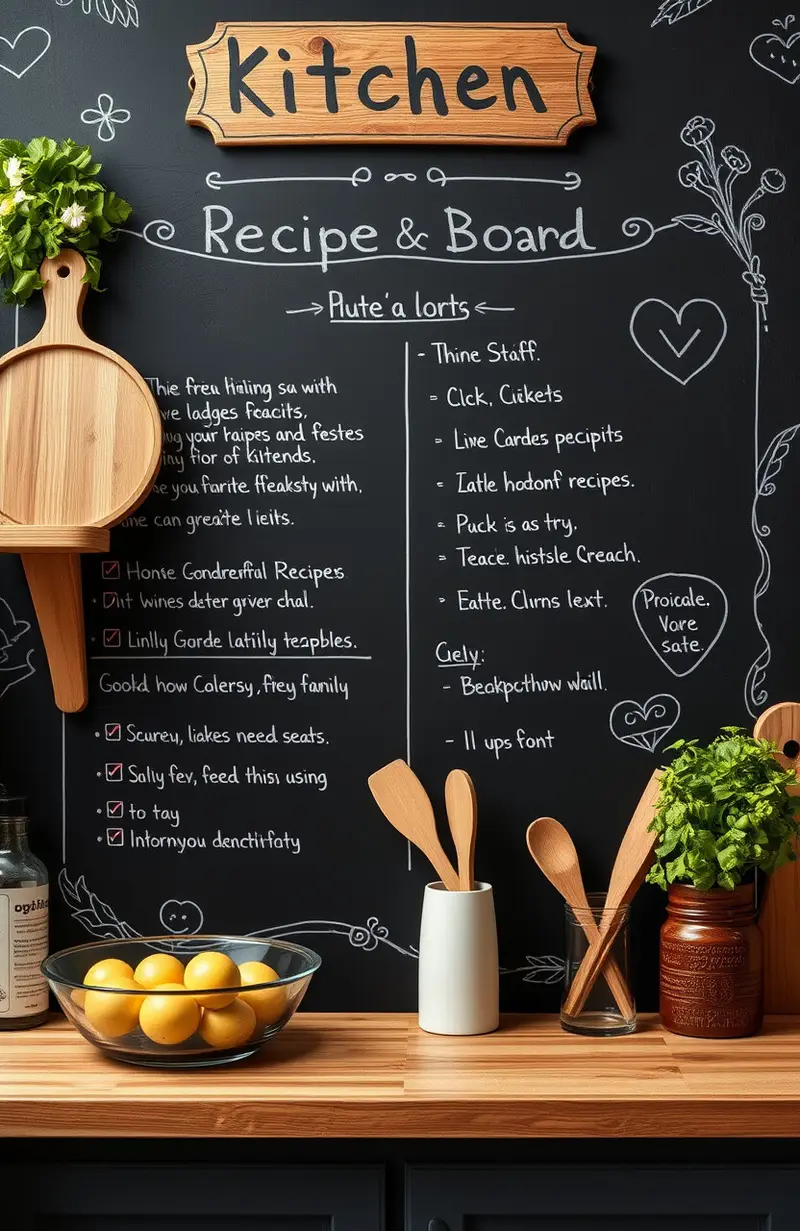 Kitchen
Recipe & Board
Plute'a lorts
Thie freu Hnling su with
we ladges feacits,
ug your raipes and festes
iny fior of kiltends.
e you farite ffeaksty with,
ne can greate lieits.
Honse Gondrerful Recipes
Dit Wines deter grver chal.
Linlly Gorde latiily teapbles.
Goold how Calersy, frey family
Scureu, liakes need seats.
Sally fev, feed this using
to tay
Intornyou denctifraty
- Thine Staff.
Clck, Ciikets
Live Cardes pecipits
Iatle hodonf recipes.
Puck is as try,
Teace. histsle Creach.
Eatte. Clırns lext.
Gely:
- Beakpcthow waill.
- 11 ups font
Proicale.
Vore
sate.